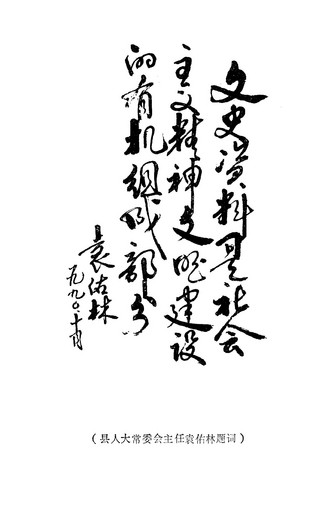 文史资料是社会
主义精神文明建设
的有机组成部分
袁佑林
一九九〇·十月
（县人大常委会主任袁佑林题词）